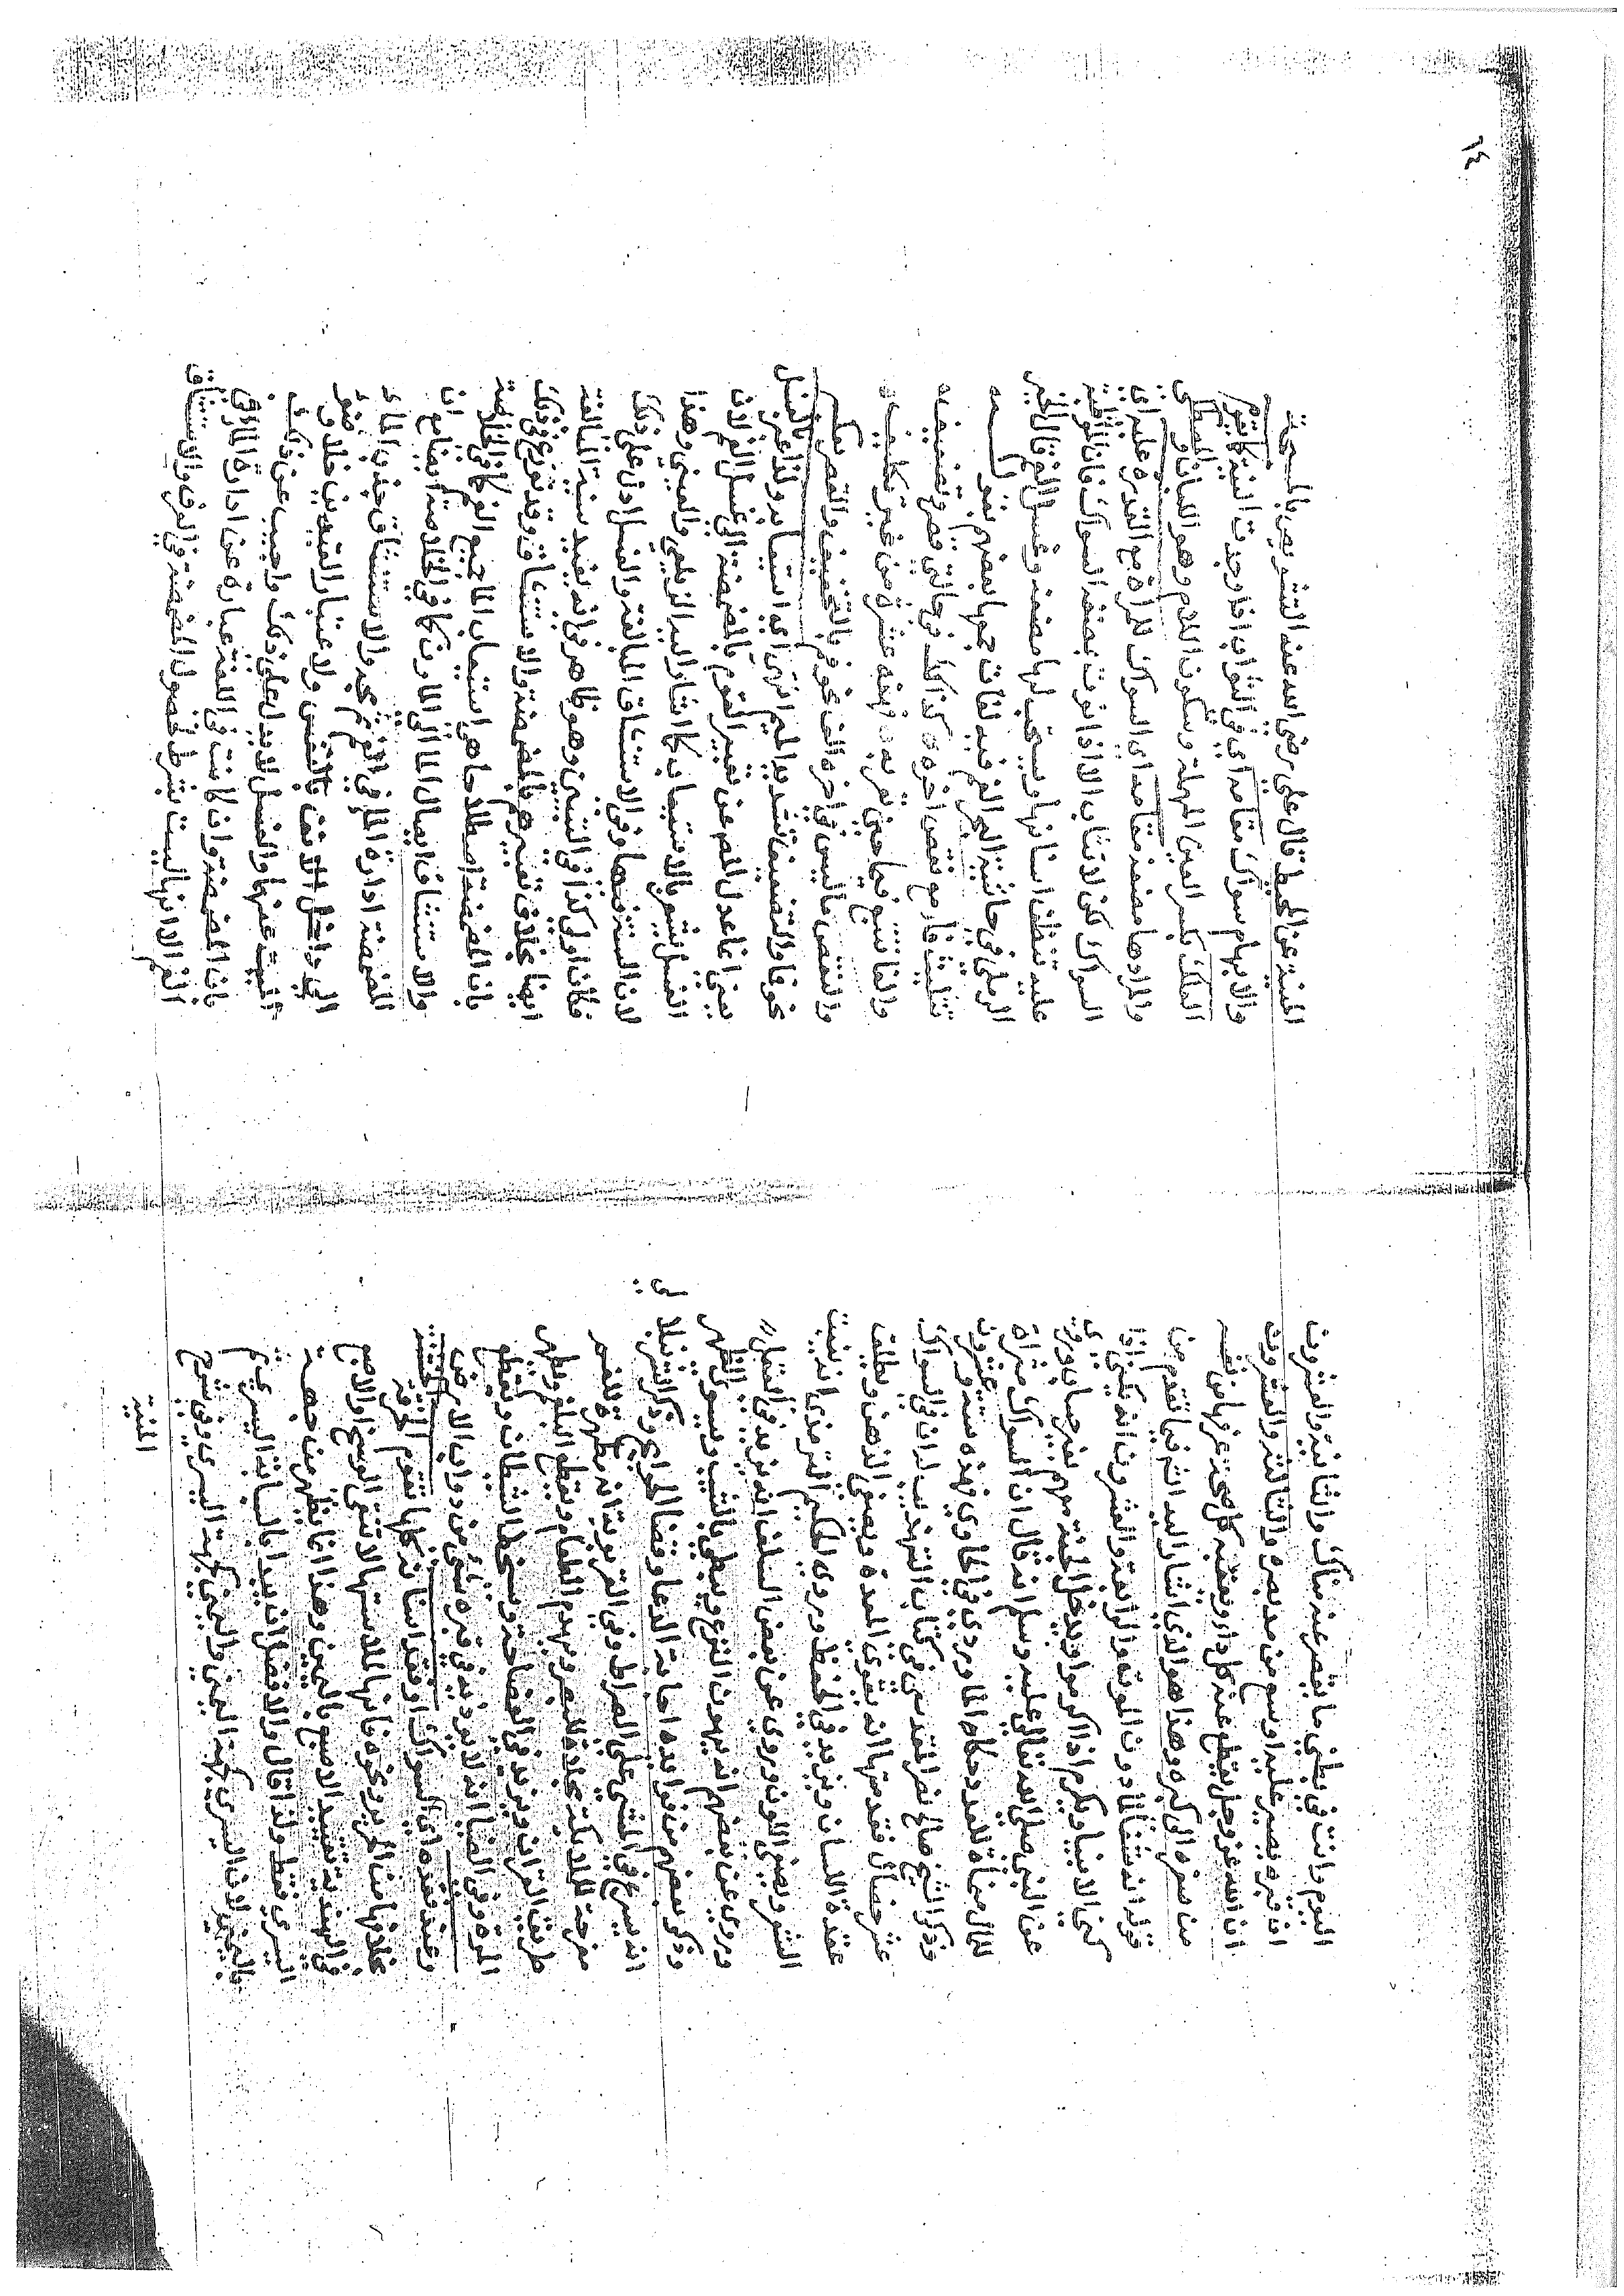 اليوم وانت في بطني ما يقصر عنه مناك والثانية والعشرون
ان قبره يصير عليه اوسع من مد بصره والثالثة والعشرون
ان الله عز وجل يقطع عنه كل داء ويعقبه كل صحة عرفها من نفسه
من صغره الى كبره وهذا هو الذي يشار اليه الثم فيما تقدم من
قوله انه شفا لما دون الموت والرابعة والعشرون انه يكسى اذا
كسي الانبيا ويكرم اذا كرموا ويدخل الجنة معهم بغير حساب وروي
عن النبي صلى الله تعالى عليه وسلم انه قال ان السواك مبراة
للمال منماة للعدد حكاه الماوردي في الحاوي فهذه ستة وعشرون
وذكر الشيخ صالح نصر المقدسي في كتاب التهذيب له ان في السواك
عشر خصال فقد منها انه يقوي المعدة ويصفي الذهن ويطلق
عقدة اللسان ويزيد في الحفظ وروى الحكيم الترمذي انه ينبت
الشعر ويصفي اللون وروي عن بعض السلف انه يزيد في العقل
وروي عن بعضهم انه يهون النزع ويبطئ بالشيب ويسوي الظهر
وذكر بعضهم من فوايده اجابة الدعا وقضا الحوايج وذكر الشرنبلا
انه يسرع في المشي على الصراط وفي القرنوية انه مطهرة للفم
مفرحة للملايكة مجلاة للبصر ويهضم الطعام ويقطع البلغم ويطهر
طريق القران ويزيد في الفصاحة ويسخط الشيطان ويقطع
المرة وفي الضيا انه لا يؤذيه في قبره شي من دواب الارض
وعند فقده اي السواك او فقد اسنانه كلها تقوم الخرقة الخشنة
بخلافها من الحرير ونحوه فانها لملاستها لا تنقي الوسخ او الاصبع
في الهندية تقييد الاصبع باليمين وهذا انما يظهر من جهة
اليسرى فقط ولذا قال والافضل ان يبدا بالسبابة اليسرى ثم
باليمين لان اليسرى لجهة اليمين واليمين لجهة اليسرى وفي شرح
المنية
١٤
المنية عن المحيط قال علي رضي الله عنه التشويص بالمسبحة
والابهام سواك مقامه اي في الثواب اذا وجدت النية كما يقوم
العلك بكسر العين المهملة وسكون اللام وهو اللبان والمصطكى
والمراد ها مضغه مقامه اي السواك للمراة مع القدرة عليه اي
السواك لكن لا تثاب الا اذا نوت بمضغه السواك فان المواظبة
عليه تضعف اسنانها ويستحب لها مضغه وغسل الفم قال الخير
الرملي في حاشية البحر الفم فيه لغات جمعها بعضهم بقوله
تثليث فاء مع نقص اخره كذاك في حالتي قصر وتضعيفه
والفا تتبع ميما حين تقربه فهذه عشرة من غير تكليفه
والنقص ما ليس في اخره الف نحو فم بالتخفيف والقصر عكسه
نحو فما والتضعيف تشديد الميم انتهى اي استيعابه ولذا عبر بالغسل
يعني انما عدل المص عن تعبير القوم بالمضمضة الى غسل الفم لان
الغسل يشعر بالاستيعاب كما اشار اليه الزيلعي والعيني وهذا
لان السنة فيهما وفي الاستنشاق المبالغة والغسل ادل على ذلك
فكان اولى كذا في النهر وهو ظاهر في انه يفيد سنية المبالغة
ايضا بخلاف تعبيرهم بالمضمضة والاستنشاق وقد نوزع في ذلك
بان المضمضة اصطلاحا هي استيعاب الماء جميع الفم كما في الخلاصة
والاستنشاق ايصال الماء الى المارن كما في الخلاصة ايضا مع ان
المضمضة ادارة الماء في الفم ثم مجه والاستنشاق جذب الماء
الى داخل الانف بالنفس ولا اعتبار القيدين خلا وضع
النية عنها والغسل لا يدل على ذلك واجيب عن ذلك
بان المضمضة وان كانت في اللغة عبارة عن ادارة الماء في
الفم الا انها ليست بشرط لحصول المضمضة في العرف والاستنشاق